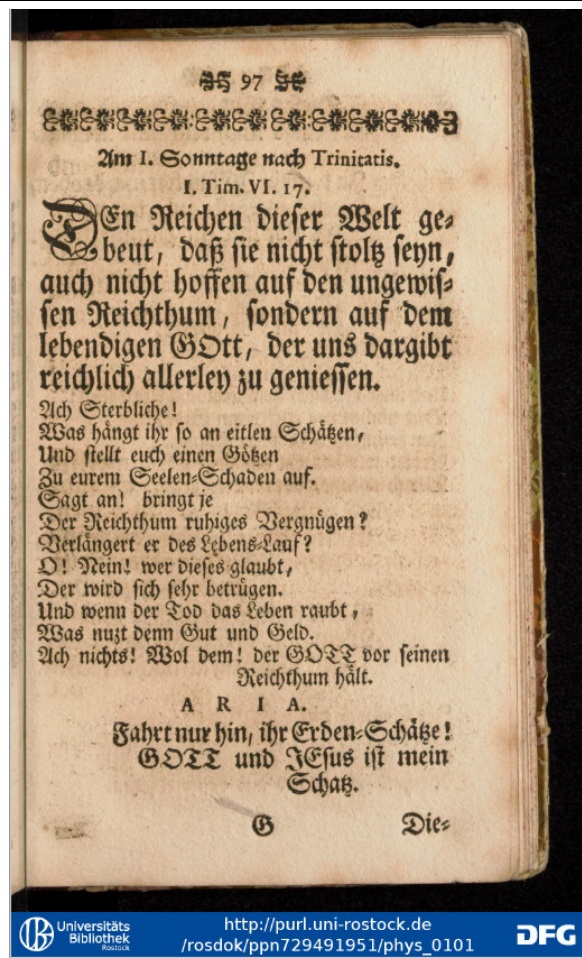 97
Am I. Sonntage nach Trinitatis.
I. Tim. VI. 17.
DEn Reichen dieser Welt ge-
beut, daß sie nicht stoltz seyn,
auch nicht hoffen auf den ungewis-
sen Reichthum, sondern auf dem
lebendigen GOtt, der uns dargibt
reichlich allerley zu geniessen.
Ach Sterbliche!
Was hängt ihr so an eitlen Schätzen,
Und stellt euch einen Götzen
Zu eurem Seelen-Schaden auf.
Sagt an! bringt je
Der Reichthum ruhiges Vergnügen?
Verlängert er des Lebens-Lauf?
O! Nein! wer dieses glaubt,
Der wird sich sehr betrügen.
Und wenn der Tod das Leben raubt,
Was nuzt denn Gut und Geld.
Ach nichts! Wol dem! der GOTT vor seinen
Reichthum hält.
ARIA.
Fahrt nur hin, ihr Erden-Schätze!
GOTT und JEsus ist mein
Schatz.
G Die-
Universitäts
Bibliothek
Rostock
http://purl.uni-rostock.de
/rosdok/ppn729491951/phys_0101
DFG